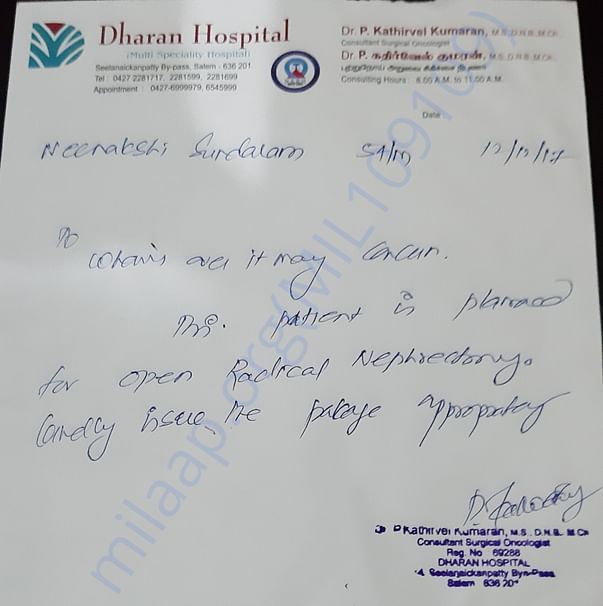 Dharan Hospital
(Multi Speciality Hospital)
Seelanaickanpatty By-pass, Salem - 636 201
Tel : 0427 2281717, 2281599, 2281699
Appointment : 0427-6999979, 6545999
Dr. P. Kathirvel Kumaran, M.S.,D.N.B.,M.Ch.,
Consultant Surgical Oncologist
Dr. P. கதிர்வேல் குமரன், M.S.,D.N.B.,M.Ch.,
புற்றுநோய் அறுவை சிகிச்சை நிபுணர்
Consulting Hours : 8.00 A.M. to 11.00 A.M.
Date :
Meenakshi Sundaram 54/M
To
whom so ever it may concern.
This patient is planned
for open Radical Nephrectomy.
Kindly issue the package appropriately
Dr P Kathirvel Kumaran, M.S., D.N.B., M.Ch
Consultant Surgical Oncologist
Reg. No 69288
DHARAN HOSPITAL
Seelanaickanpatty Bye-Pass
Salem 636 201
milaap.org(MIL109109)